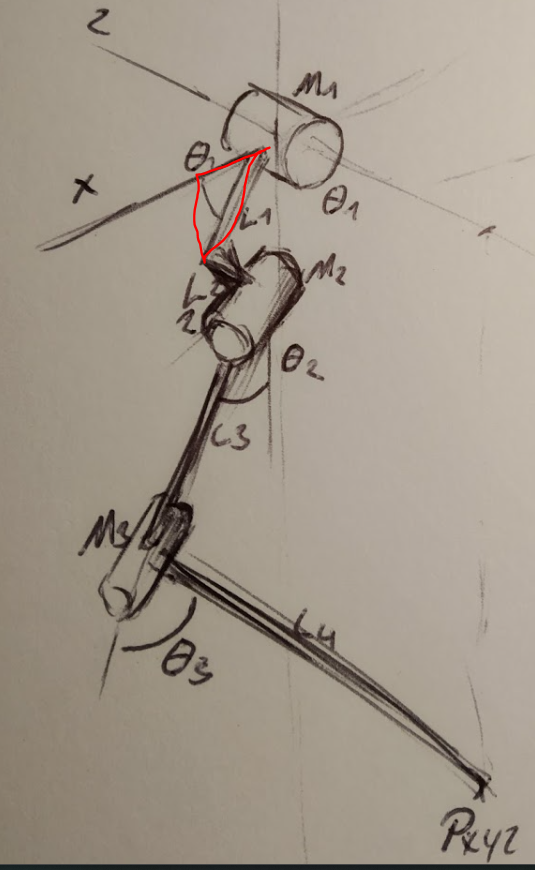 Z
M1
θ1
X
θ1
L1
M2
L2
θ2
L3
M3
L4
θ3
Pxyz